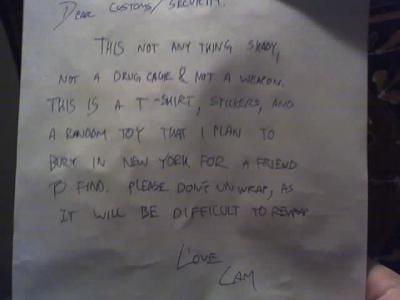 DEAR CUSTOMS/SECURITY.
THIS NOT ANY THING SHADY,
NOT A DRUG CACHE & NOT A WEAPON.
THIS IS A T-SHIRT, STICKERS, AND
A RANDOM TOY THAT I PLAN TO
BURY IN NEW YORK FOR A FRIEND
TO FIND. PLEASE DON'T UNWRAP, AS
IT WILL BE DIFFICULT TO REWRAP
LOVE
CAM